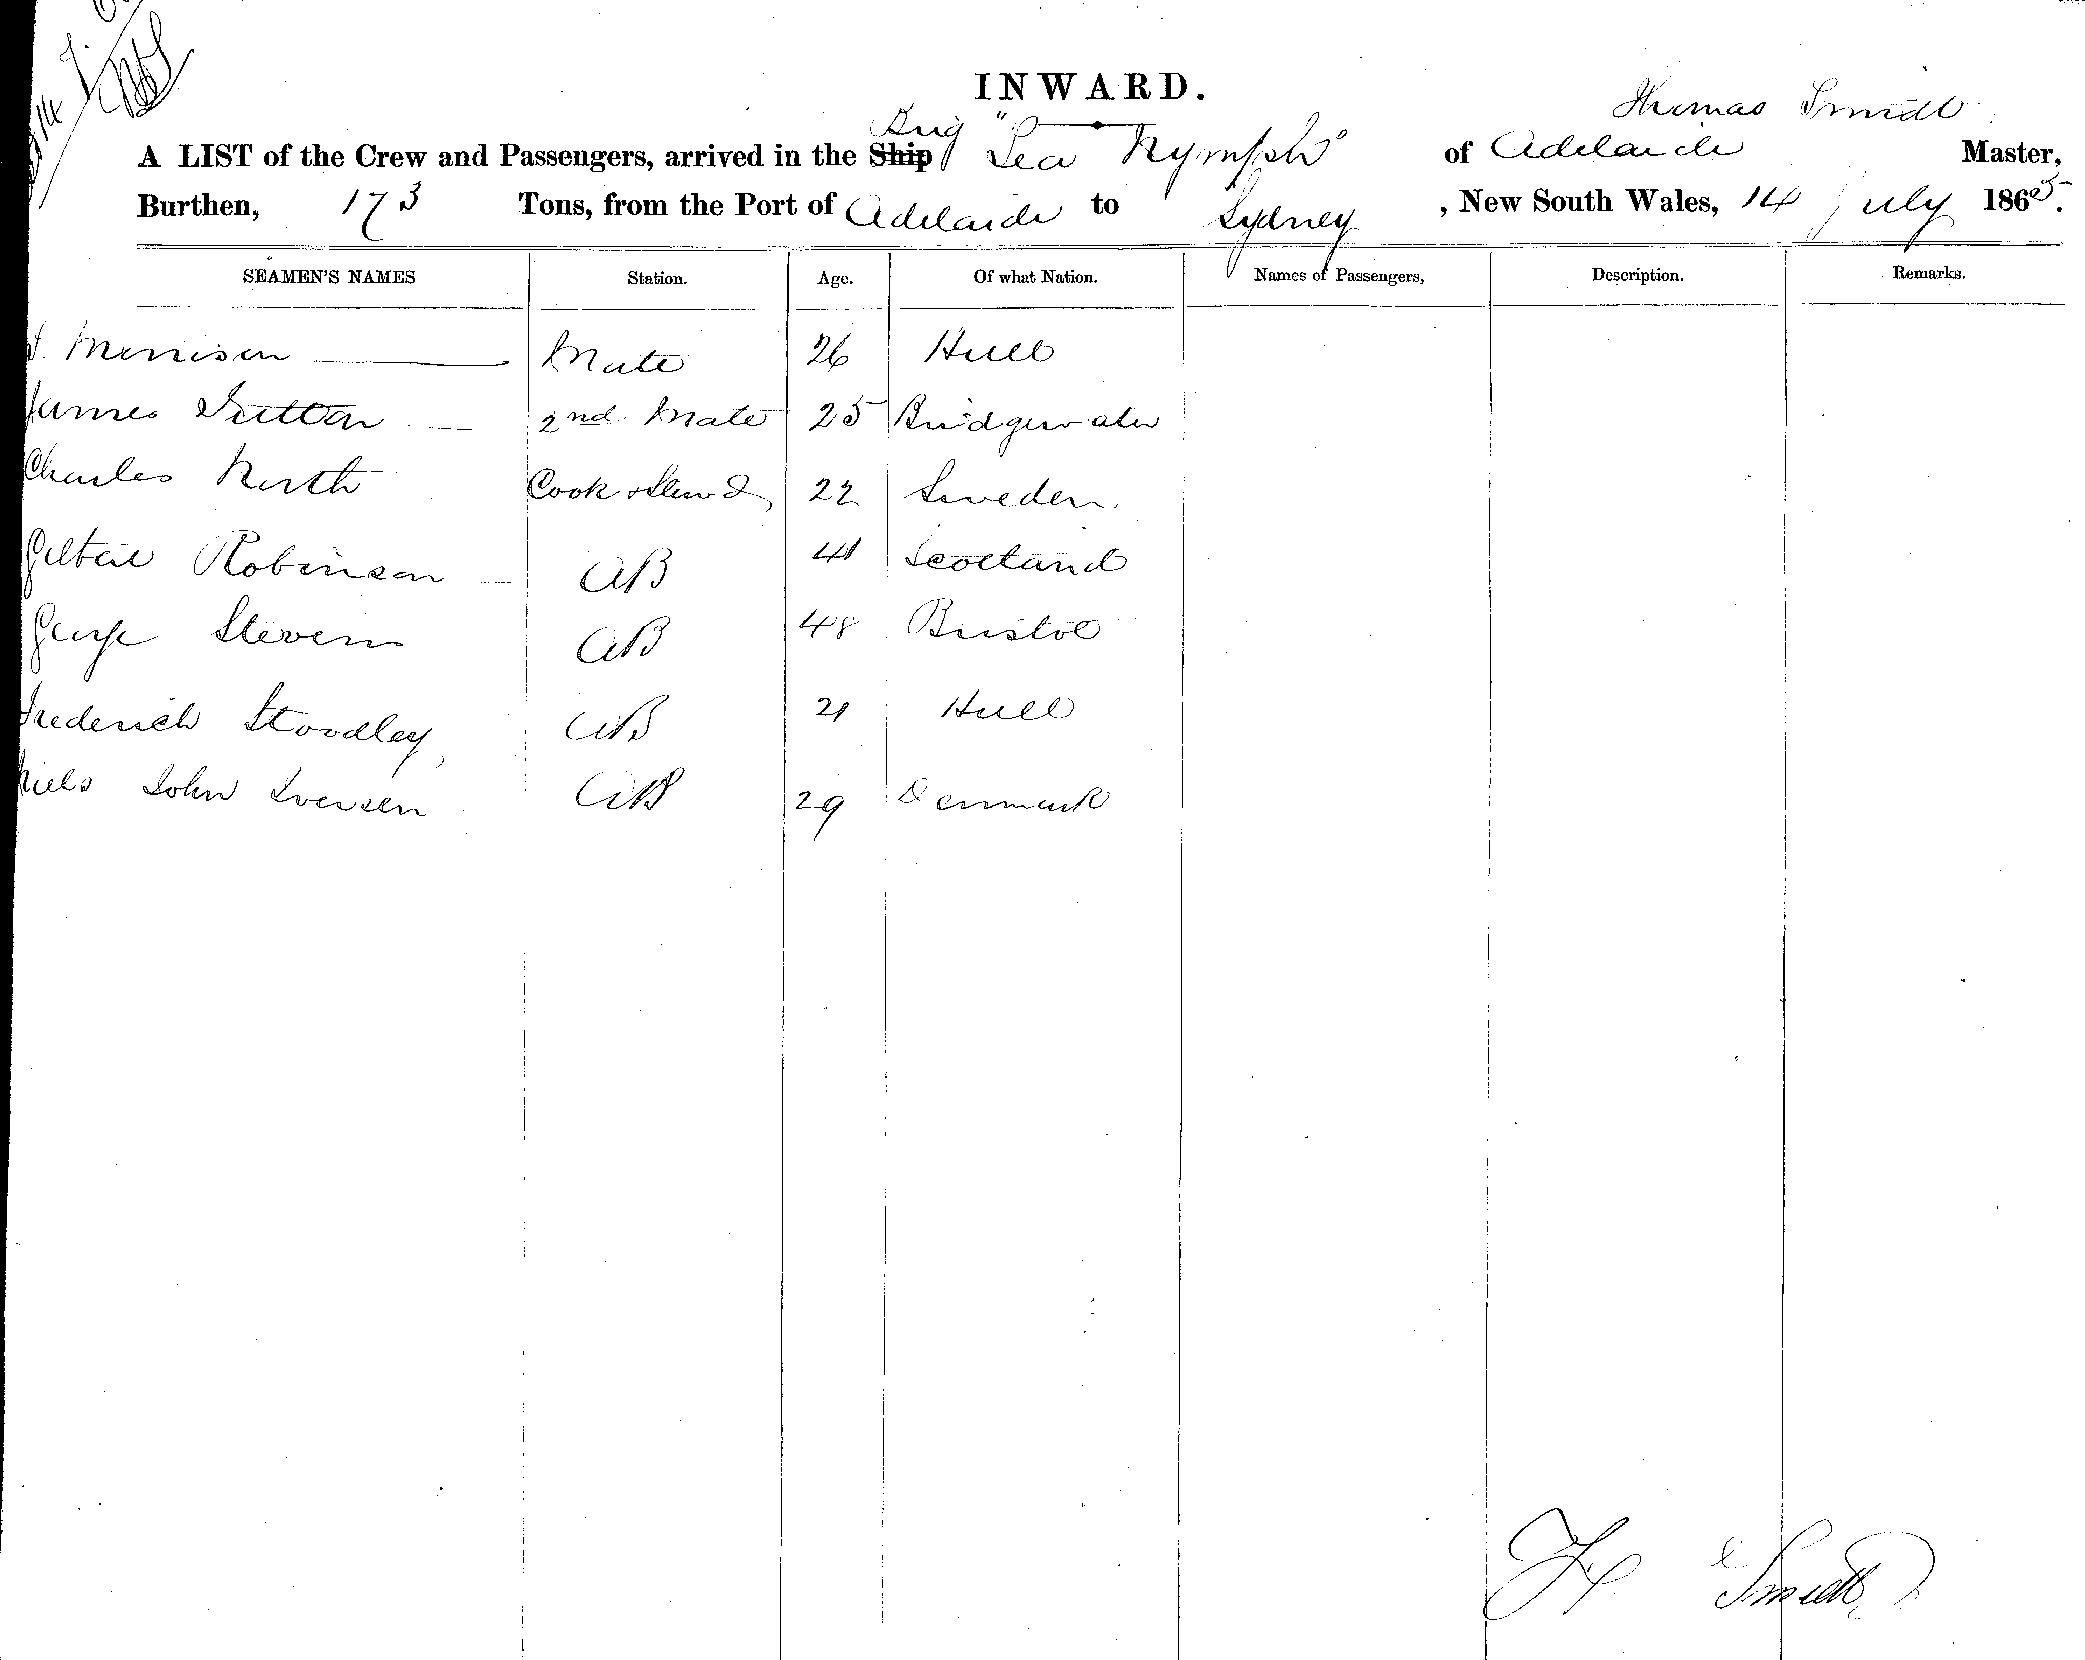 INWARD.
Thomas Smidt
A LIST of the Crew and Passengers, arrived in the Ship Brig "Sea Nymph" of Adelaide Master,
Burthen, 173 Tons, from the Port of Adelaide to Sydney, New South Wales, 14 July 1865.
SEAMEN'S NAMES Station. Age. Of what Nation. Names of Passengers, Description. Remarks.
Morrison Mate 26 Hull
James Sutton 2nd Mate 25 Bridgewater
Charles North Cook & Stewd 22 Sweden.
Gilbert Robinson AB 41 Scotland
George Stevens AB 48 Bristol
Frederich Stoodley AB 21 Hull
Niels John Iversen AB 29 Denmark
Smidt